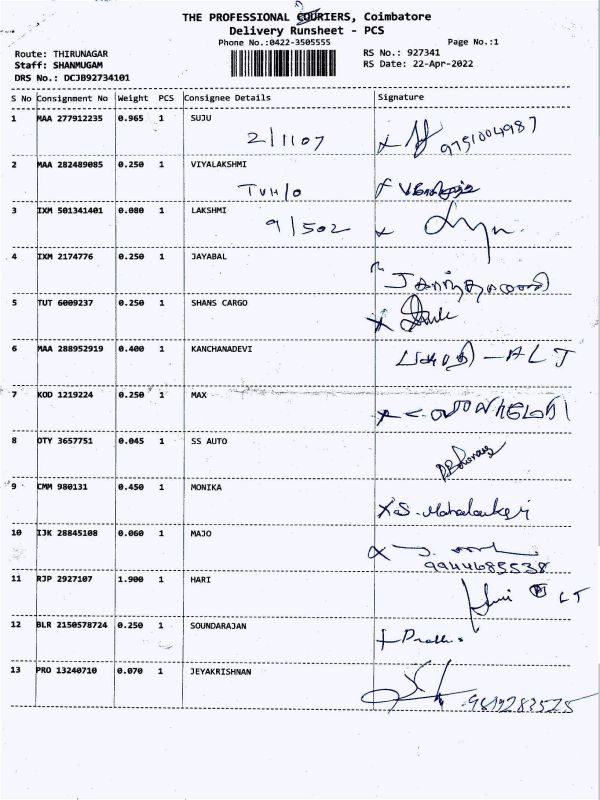 THE PROFESSIONAL COURIERS, Coimbatore
Delivery Runsheet - PCS
Phone No.:0422-3505555
Page No.:1
Route: THIRUNAGAR
RS No.: 927341
Staff: SHANMUGAM
RS Date: 22-Apr-2022
DRS No.: DCJB92734101
S No Consignment No Weight PCS Consignee Details Signature
1 MAA 277912235 0.965 1 SUJU
2/1107 9751004987
2 MAA 282489085 0.250 1 VIYALAKSHMI
TVH/0
3 IXM 501341401 0.080 1 LAKSHMI
9/502
4 IXM 2174776 0.250 1 JAYABAL
5 TUT 6009237 0.250 1 SHANS CARGO
6 MAA 288952919 0.400 1 KANCHANADEVI
- ALT
7 KOD 1219224 0.250 1 MAX
8 OTY 3657751 0.045 1 SS AUTO
9 CMM 980131 0.450 1 MONIKA
10 IJK 28845108 0.060 1 MAJO
9944685538
11 RJP 2927107 1.900 1 HARI
LT
12 BLR 2150578724 0.250 1 SOUNDARAJAN
13 PRO 13240710 0.070 1 JEYAKRISHNAN